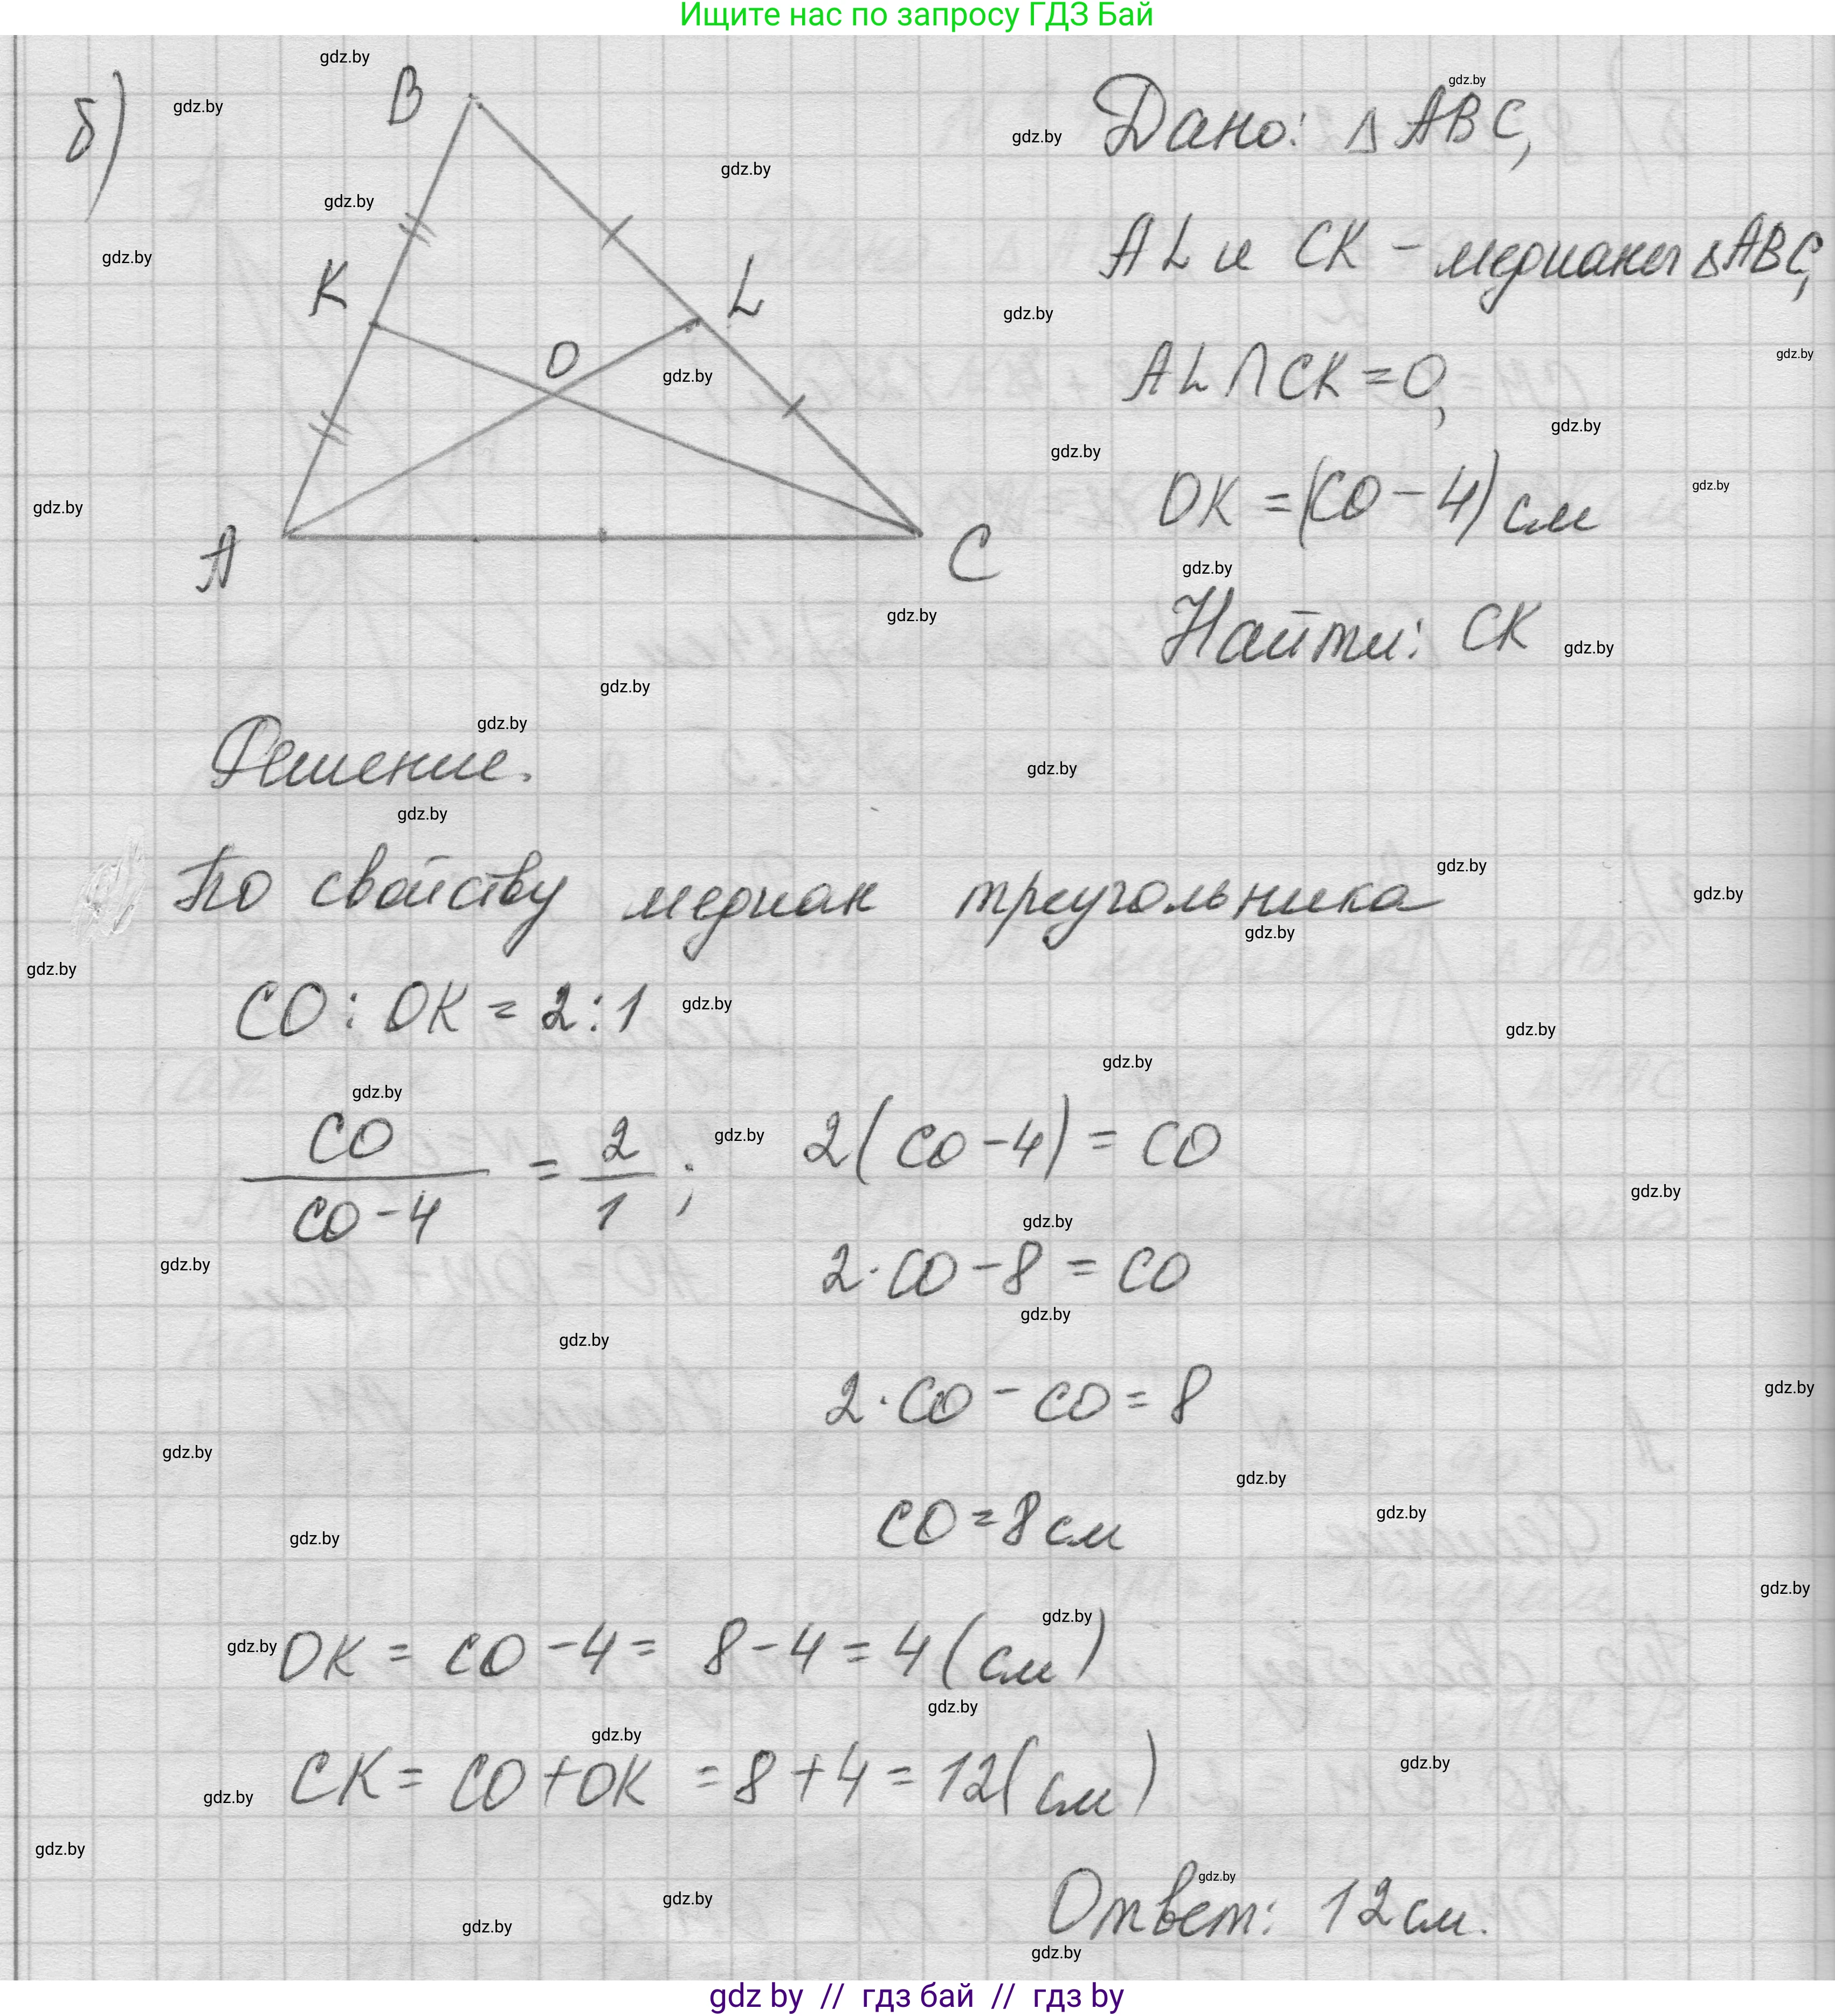 Ищите нас по запросу ГДЗ Бай
б)
B
K
L
O
A
C
Дано: Δ ABC,
AL и CK - медианы ΔABC,
AL ∩ CK = O,
OK = (CO - 4) см
Найти: CK
Решение.
По свойству медиан треугольника
CO : OK = 2 : 1
CO / CO - 4 = 2 / 1 ; 2(CO - 4) = CO
2 · CO - 8 = CO
2 · CO - CO = 8
CO = 8 см
OK = CO - 4 = 8 - 4 = 4 (см)
CK = CO + OK = 8 + 4 = 12 (см)
Ответ: 12 см.
gdz.by
gdz by // гдз бай // гдз by